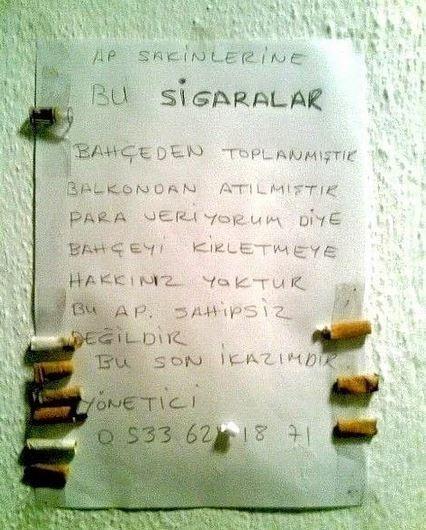 AP SAKİNLERİNE
BU SİGARALAR
BAHÇEDEN TOPLANMIŞTIR
BALKONDAN ATILMIŞTIR
PARA VERİYORUM DİYE
BAHÇEYİ KİRLETMEYE
HAKKINIZ YOKTUR
BU AP. SAHİPSİZ
DEĞİLDİR
BU SON İKAZIMDIR
YÖNETİCİ
0 533 62 18 71